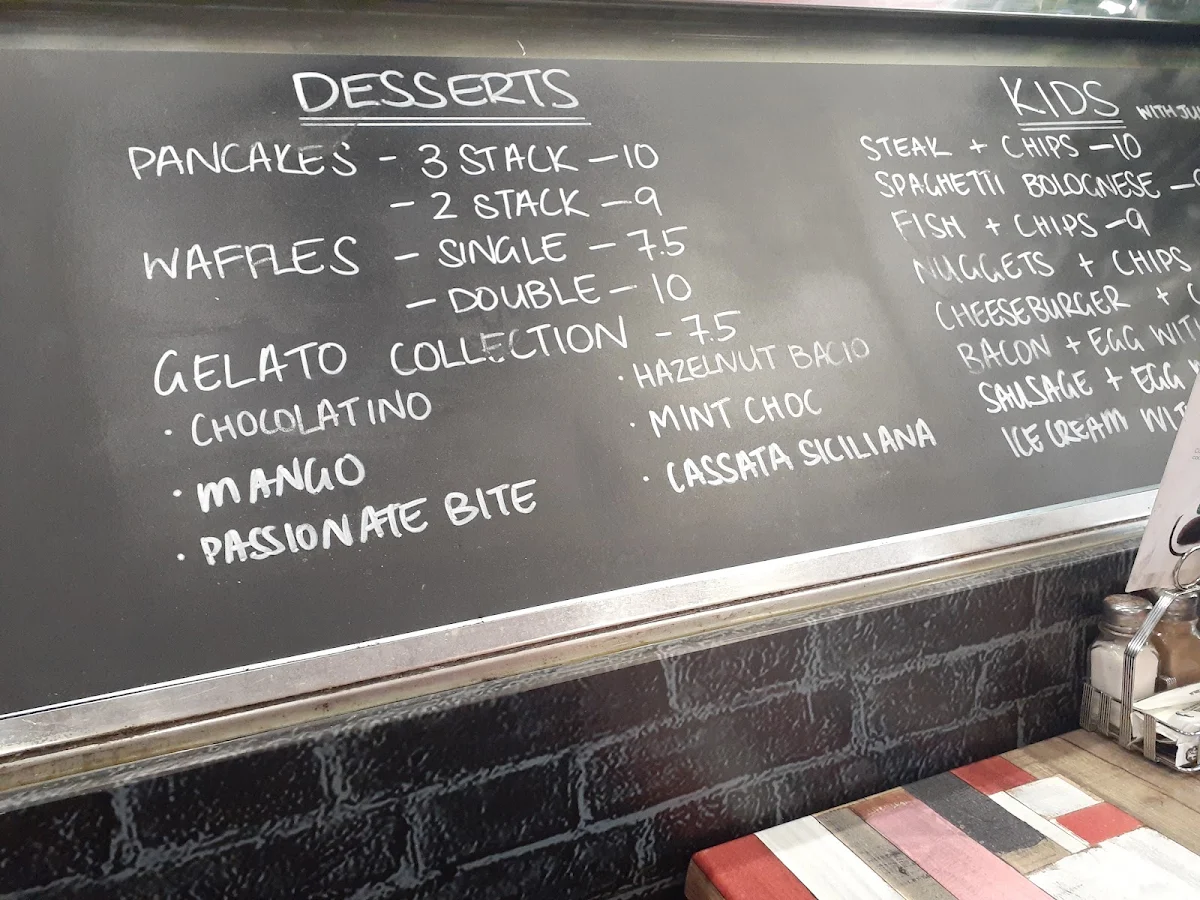 DESSERTS
PANCAKES - 3 STACK - 10
- 2 STACK - 9
WAFFLES - SINGLE - 7.5
- DOUBLE - 10
GELATO COLLECTION - 7.5
· CHOCOLATINO
· MANGO
· PASSIONATE BITE
· HAZELNUT BACIO
· MINT CHOC
· CASSATA SICILIANA
KIDS WITH
STEAK + CHIPS - 10
SPAGHETTI BOLOGNESE -
FISH + CHIPS - 9
NUGGETS + CHIPS
CHEESEBURGER +
BACON + EGG
SAUSAGE + EGG
ICE CREAM